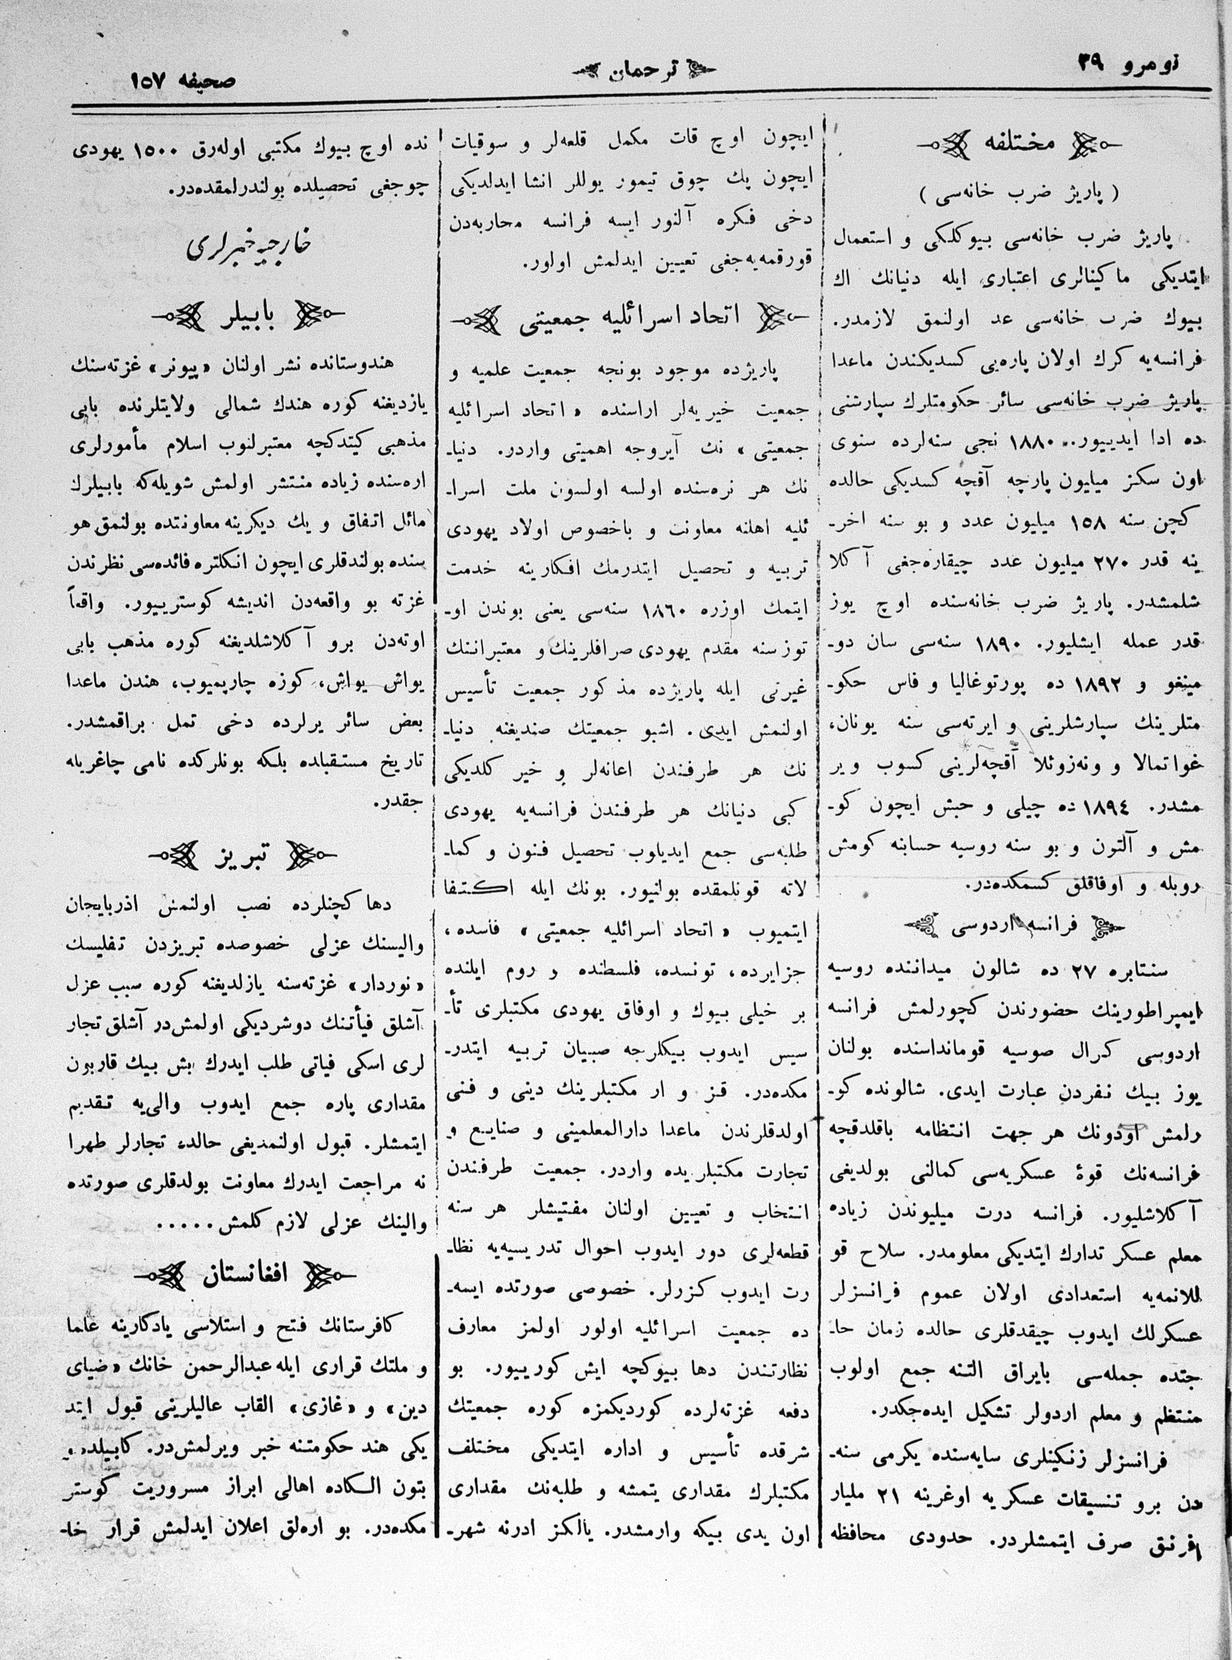 نومرو ٣٩
ترجمان
صحيفه ١٥٧
مختلفه
( پاريژ ضرب خانه‌سى )
پاريژ ضرب خانه‌سى بيوكلكى و استعمال
ايتديكى ماكينالرى اعتبارى ايله دنيانك اك
بيوك ضرب خانه‌سى عد اولنمق لازمدر.
فرانسه‌يه كرك اولان پاره‌يى كسديكندن ماعدا
پاريژ ضرب خانه‌سى سائر حكومتلرك سپارشنى
ده ادا ايدييور.. ١٨٨٠ نجى سنه‌لرده سنوى
اون سكز ميليون پارچه آقچه كسديكى حالده
كچن سنه ١٥٨ ميليون عدد و بو سنه اخر-
ينه قدر ٢٧٠ ميليون عدد چيقاره‌جغى آكلا
شلمشدر. پاريژ ضرب خانه‌سنده اوچ يوز
قدر عمله ايشليور. ١٨٩٠ سنه‌سى سان دو-
مينغو و ١٨٩٢ ده پورتوغاليا و فاس حكو-
متلرينك سپارشلرينى و ايرته‌سى سنه يونان،
غواتمالا و ونه‌زوئلا آقچه‌لرينى كسوب وير
مشدر. ١٨٩٤ ده چيلى و حبش ايچون كو-
مش و آلتون و بو سنه روسيه حسابنه كومش
روبله و اوفاقلق كسمكده‌در.
فرانسه اردوسى
سنتابره ٢٧ ده شالون ميداننده روسيه
ايمپراطورينك حضورندن كچورلمش فرانسه
اردوسى كرال صوسيه قومانداسنده بولنان
يوز بيك نفردن عبارت ايدى. شالونده كو-
رلمش اودونك هر جهت انتظامه باقلدقچه
فرانسه‌نك قوهٔ عسكريه‌سى كمالنى بولديغى
آكلاشليور. فرانسه درت ميليوندن زياده
معلم عسكر تدارك ايتديكى معلومدر. سلاح قو
للانمه‌يه استعدادى اولان عموم فرانسزلر
عسكرلك ايدوب چيقدقلرى حالده زمان حا-
جتده جمله‌سى بايراق التنه جمع اولوب
منتظم و معلم اردولر تشكيل ايده‌جكدر.
فرانسزلر زنكينلرى سايه‌سنده يكرمى سنه-
دن برو تنسيقات عسكريه اوغرينه ٢١ مليار
فرنق صرف ايتمشلردر. حدودى محافظه
ايچون اوچ قات مكمل قلعه‌لر و سوقيات
ايچون پك چوق تيمور يوللر انشا ايدلديكى
دخى فكره آلنور ايسه فرانسه محاربه‌دن
قورقمه‌يه‌جغى تعيين ايدلمش اولور.
اتحاد اسرائليه جمعيتى
پاريژده موجود بونجه جمعيت علميه و
جمعيت خيريه‌لر اراسنده «اتحاد اسرائليه
جمعيتى» نك آيروجه اهميتى واردر. دنيا-
نك هر نره‌سنده اولسه اولسون ملت اسرا-
ئليه اهلنه معاونت و باخصوص اولاد يهودى
تربيه و تحصيل ايتدرمك افكارينه خدمت
ايتمك اوزره ١٨٦٠ سنه‌سى يعنى بوندن او-
توز سنه مقدم يهودى صرافلرينك و معتبراننك
غيرتى ايله پاريژده مذكور جمعيت تأسيس
اولنمش ايدى. اشبو جمعيتك صنديغنه دنيا-
نك هر طرفندن اعانه‌لر و خير كلديكى
كبى دنيانك هر طرفندن فرانسه‌يه يهودى
طلبه‌سى جمع ايدياوب تحصيل فنون و كما-
لاته قونلمقده بولنيور. بونك ايله اكتفا
ايتميوب «اتحاد اسرائليه جمعيتى» فاسده،
جزايرده، تونسده، فلسطنده و روم ايلنده
بر خيلى بيوك و اوفاق يهودى مكتبلرى تأ-
سيس ايدوب بيكلرجه صبيان تربيه ايتدر-
مكده‌در. قز و ار مكتبلرينك دينى و فنى
اولدقلرندن ماعدا دارالمعلمينى و صنايع و
تجارت مكتبلريده واردر. جمعيت طرفندن
انتخاب و تعيين اولنان مفتيشلر هر سنه
قطعه‌لرى دور ايدوب احوال تدريسيه‌يه نظا-
رت ايدوب كزرلر. خصوصى صورتده ايسه-
ده جمعيت اسرائليه اولور اولمز معارف
نظارتندن دها بيوكچه ايش كورييور. بو
دفعه غزته‌لرده كورديكمزه كوره جمعيتك
شرقده تأسيس و اداره ايتديكى مختلف
مكتبلرك مقدارى يتمشه و طلبه‌نك مقدارى
اون يدى بيكه وارمشدر. يالكز ادرنه شهر-
نده اوچ بيوك مكتبى اوله‌رق ١٥٠٠ يهودى
چوجغى تحصيلده بولندرلمقده‌در.
خارجيه خبرلرى
بابيلر
هندوستانده نشر اولنان «پيونر» غزته‌سنك
يازديغنه كوره هندك شمالى ولايتلرنده بابى
مذهبى كيتدكچه معتبرلنوب اسلام مأمورلرى
اره‌سنده زياده منتشر اولمش شويله‌كه بابيلرك
مائل اتفاق و يك ديكرينه معاونتده بولنمق هو
سنده بولندقلرى ايچون انكلتره فائده‌سى نظرندن
غزته بو واقعه‌دن انديشه كوسترييور. واقعاً
اوته‌دن برو آكلاشلديغنه كوره مذهب بابى
يواش يواش، كوزه چارپميوب، هندن ماعدا
بعض سائر يرلرده دخى تمل براقمشدر.
تاريخ مستقبلده بلكه بونلركده نامى چاغريله
جقدر.
تبريز
دها كچنلرده نصب اولنمش اذربايجان
واليسنك عزلى خصوصده تبريزدن تفليسك
«نوردار» غزته‌سنه يازلديغنه كوره سبب عزل
آشلق فيأتنك دوشرديكى اولمش‌در آشلق تجار
لرى اسكى فياتى طلب ايدرك بش بيك قاربون
مقدارى پاره جمع ايدوب والى‌يه تقديم
ايتمشلر. قبول اولنمديغى حالده تجارلر طهرا
نه مراجعت ايدرك معاونت بولدقلرى صورتده
والينك عزلى لازم كلمش.....
افغانستان
كافرستانك فتح و استلاسى يادكارينه علما
و ملتك قرارى ايله عبدالرحمن خانك «ضياى
دين» و «غازى» القاب عاليلرينى قبول ايتد
يكى هند حكومتنه خبر ويرلمش‌در. كابيلده و
بتون الكاده اهالى ابراز مسروريت كوستر
مكده‌در. بو اره‌لق اعلان ايدلمش قرار خا-